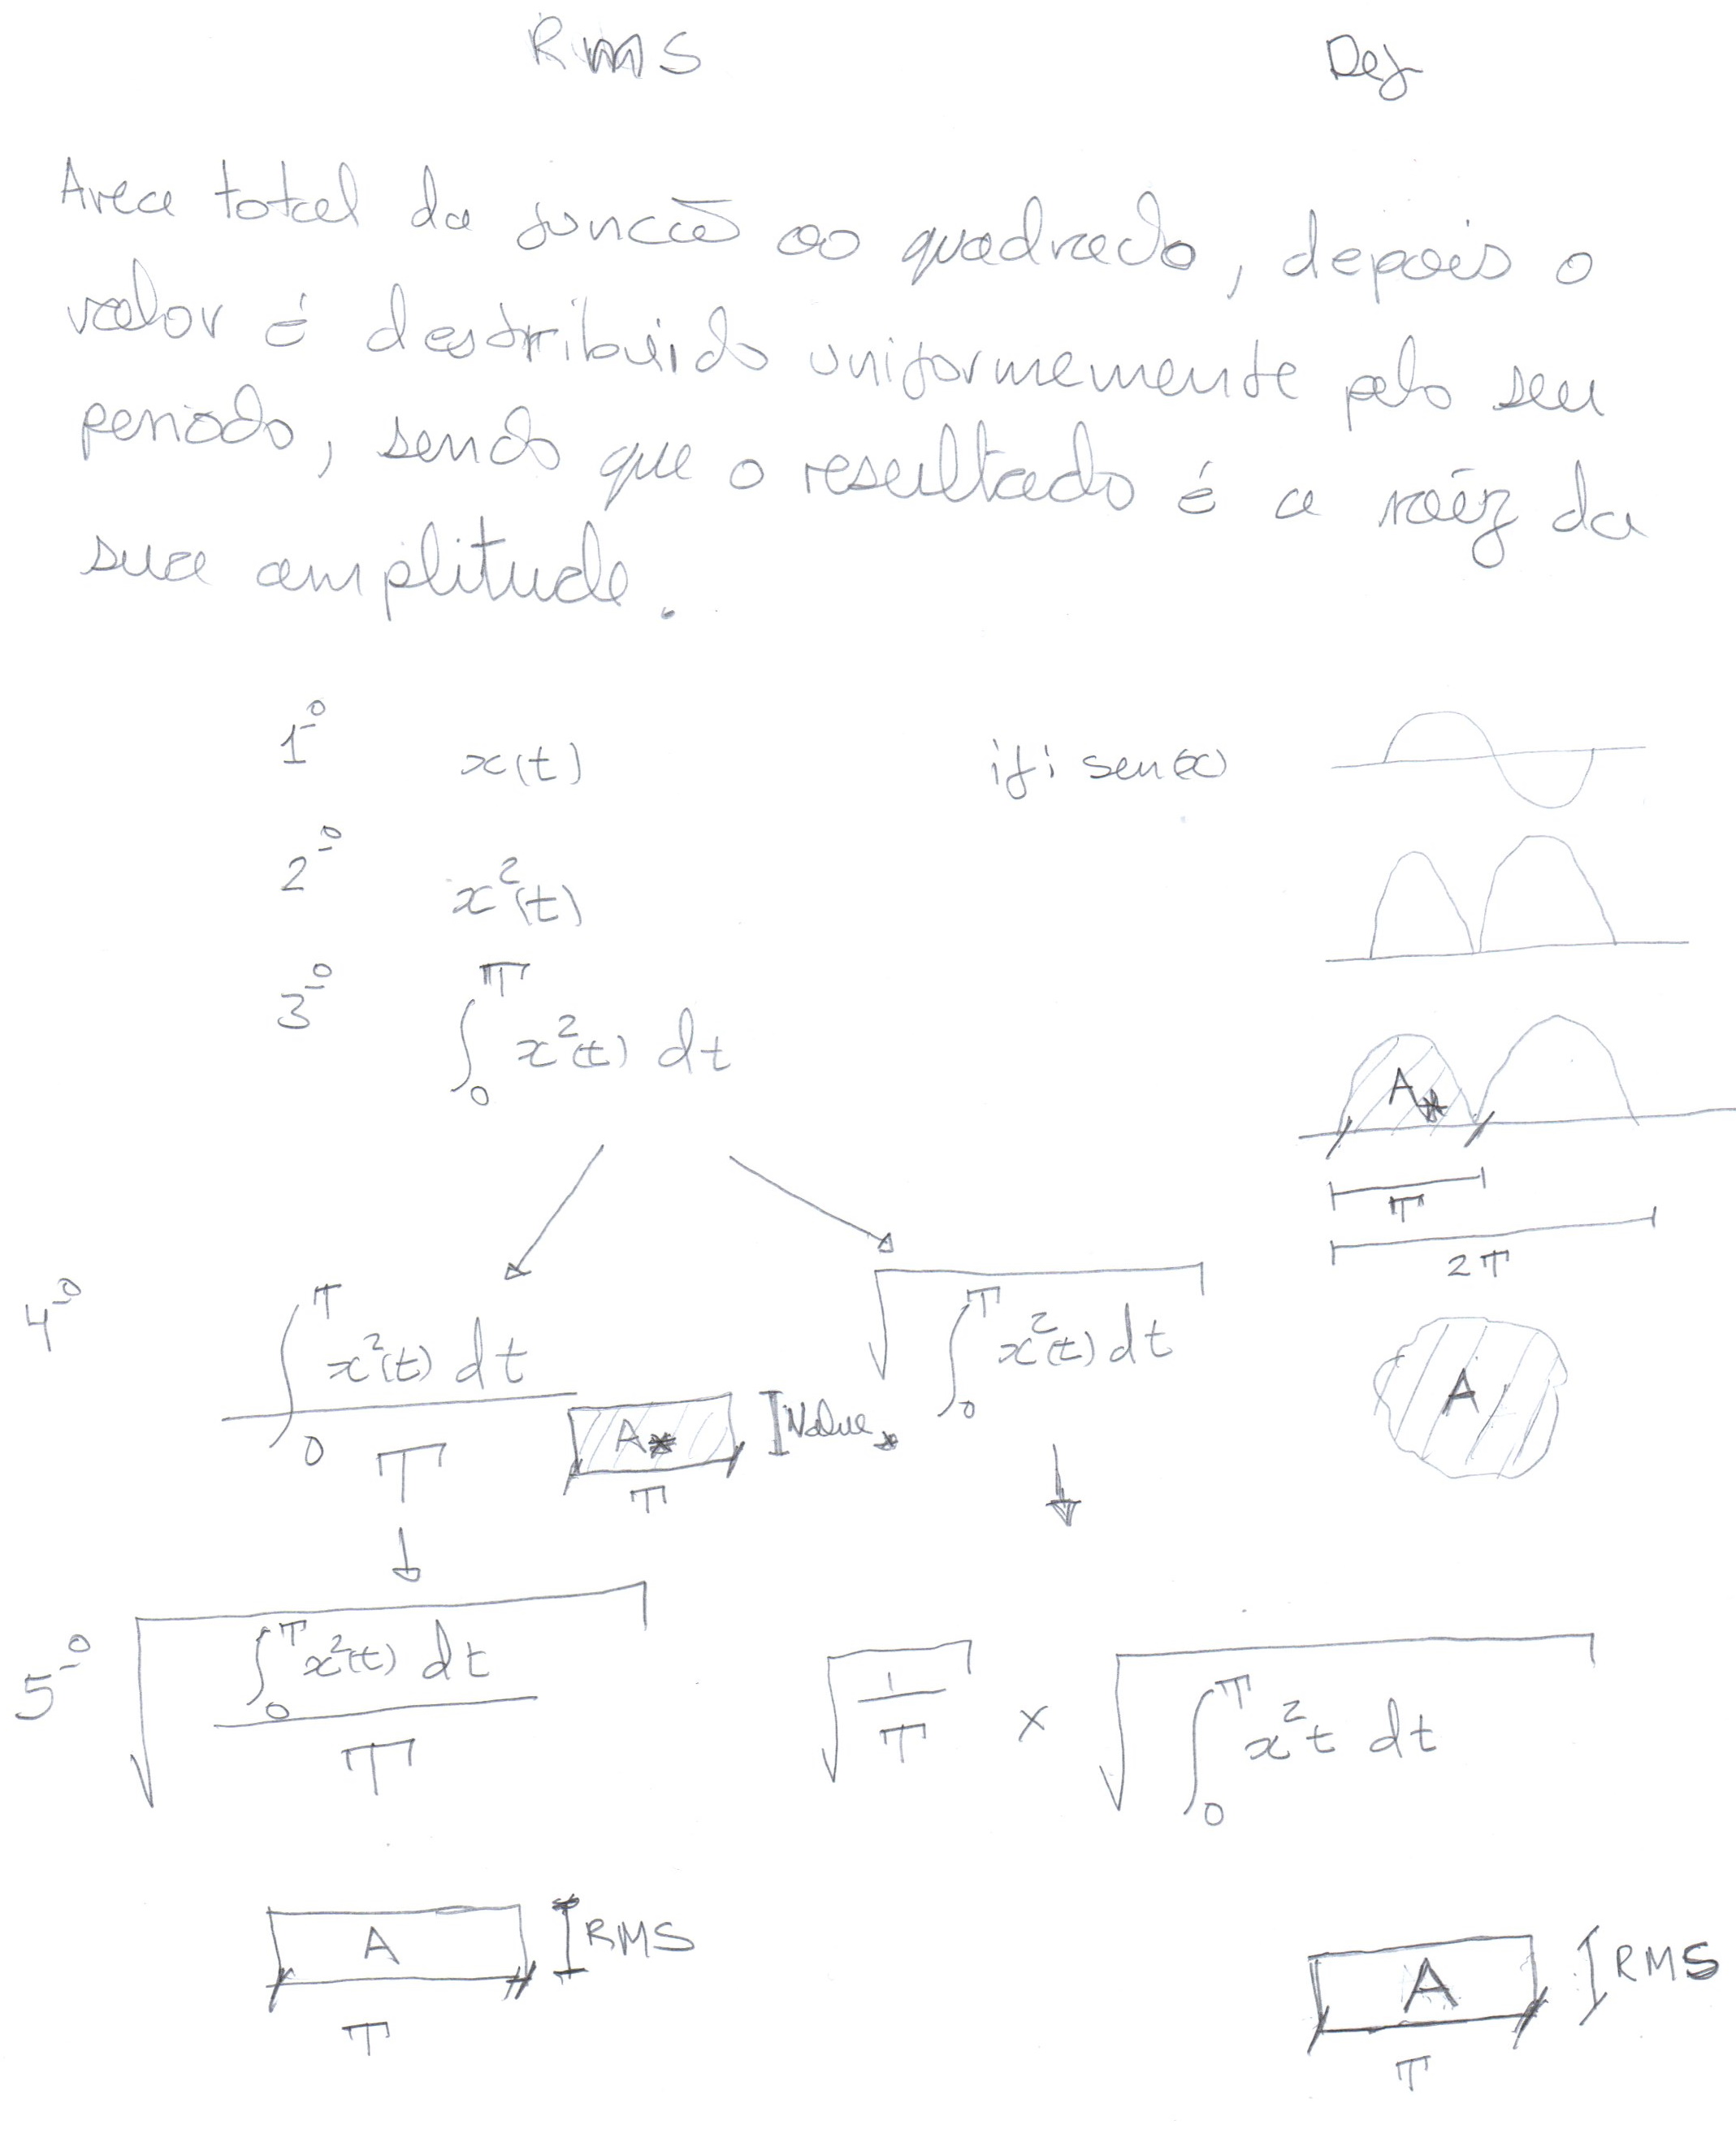 RMS Def
Area total da funcão ao quadrado, depois o
valor é destribuido uniformemente pelo seu
periodo, sendo que o resultado é a raíz da
sua amplitude.
1º x(t) if: sen(x)
2º x²(t)
3º ∫₀ᵀ x²(t) dt
A*
T
2T
4º ∫₀ᵀ x²(t) dt / T √(∫₀ᵀ x²(t) dt) A
A* Value*
T
5º √(∫₀ᵀ x²(t) dt / T) √(1/T) × √(∫₀ᵀ x²t dt)
A RMS A RMS
T T